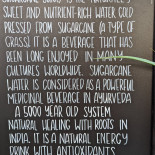 SWEET AND NUTRIENT-RICH WATER GOLD
PRESSED FROM SUGARCANE (A TYPE OF
GRASS). IT IS A BEVERAGE THAT HAS
BEEN LONG ENJOYED IN MANY
CULTURES WORLDWIDE. SUGARCANE
WATER IS CONSIDERED AS A POWERFUL
MEDICINAL BEVERAGE IN AYURVEDA
A 5000 YEAR OLD SYSTEM
NATURAL HEALING WITH ROOTS IN
INDIA. IT IS A NATURAL ENERGY
DRINK WITH ANTIOXIDANTS